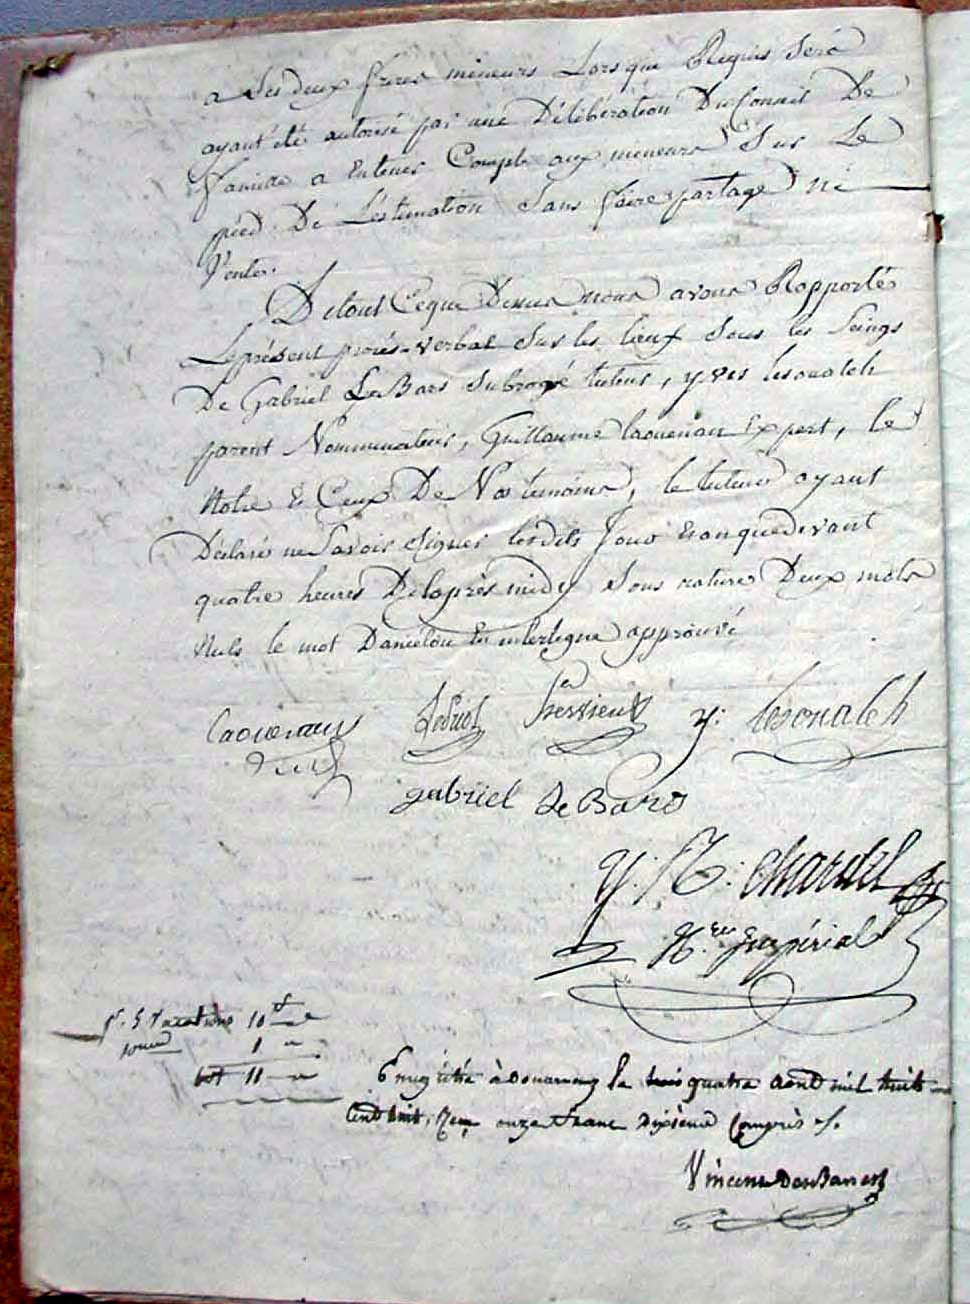 a Ses deux freres mineurs Lorsque Requis Sera
ayant été autorisé par une Délibération Du Conseil De
famille a En tenir Compte aux mineurs Sur Le
pied De L'estimation Sans faire partage ni
Vente.
De tout Ceque Dessus nous avons Rapporté
Le présent procés-verbal Sur les lieux Sous les Seings
De Gabriel Le Bars Subrogé tuteur, yves lesonaleh
parent Nominateur, Guillaume laouenan Expert, le
Notre & Ceux De Nos temoins, le tuteur ayant
Déclaré ne Savoir Signer lesdits Jour & an quedevant
quatre heures Delaprès midy Sous rature Deux mots
Nuls le mot Daniélou En interligne approuvé
Laouenan
y: lesonaleh
gabriel Le Bars
y. M. Chardel
N.re Impérial
pr. 5 Vacations 10 f
1
tot 11
Enregistré à Douarnenez le trois quatre aout mil huit
Cent huit, Reçu onze franc Dixième Compris
Vincent Desbarres